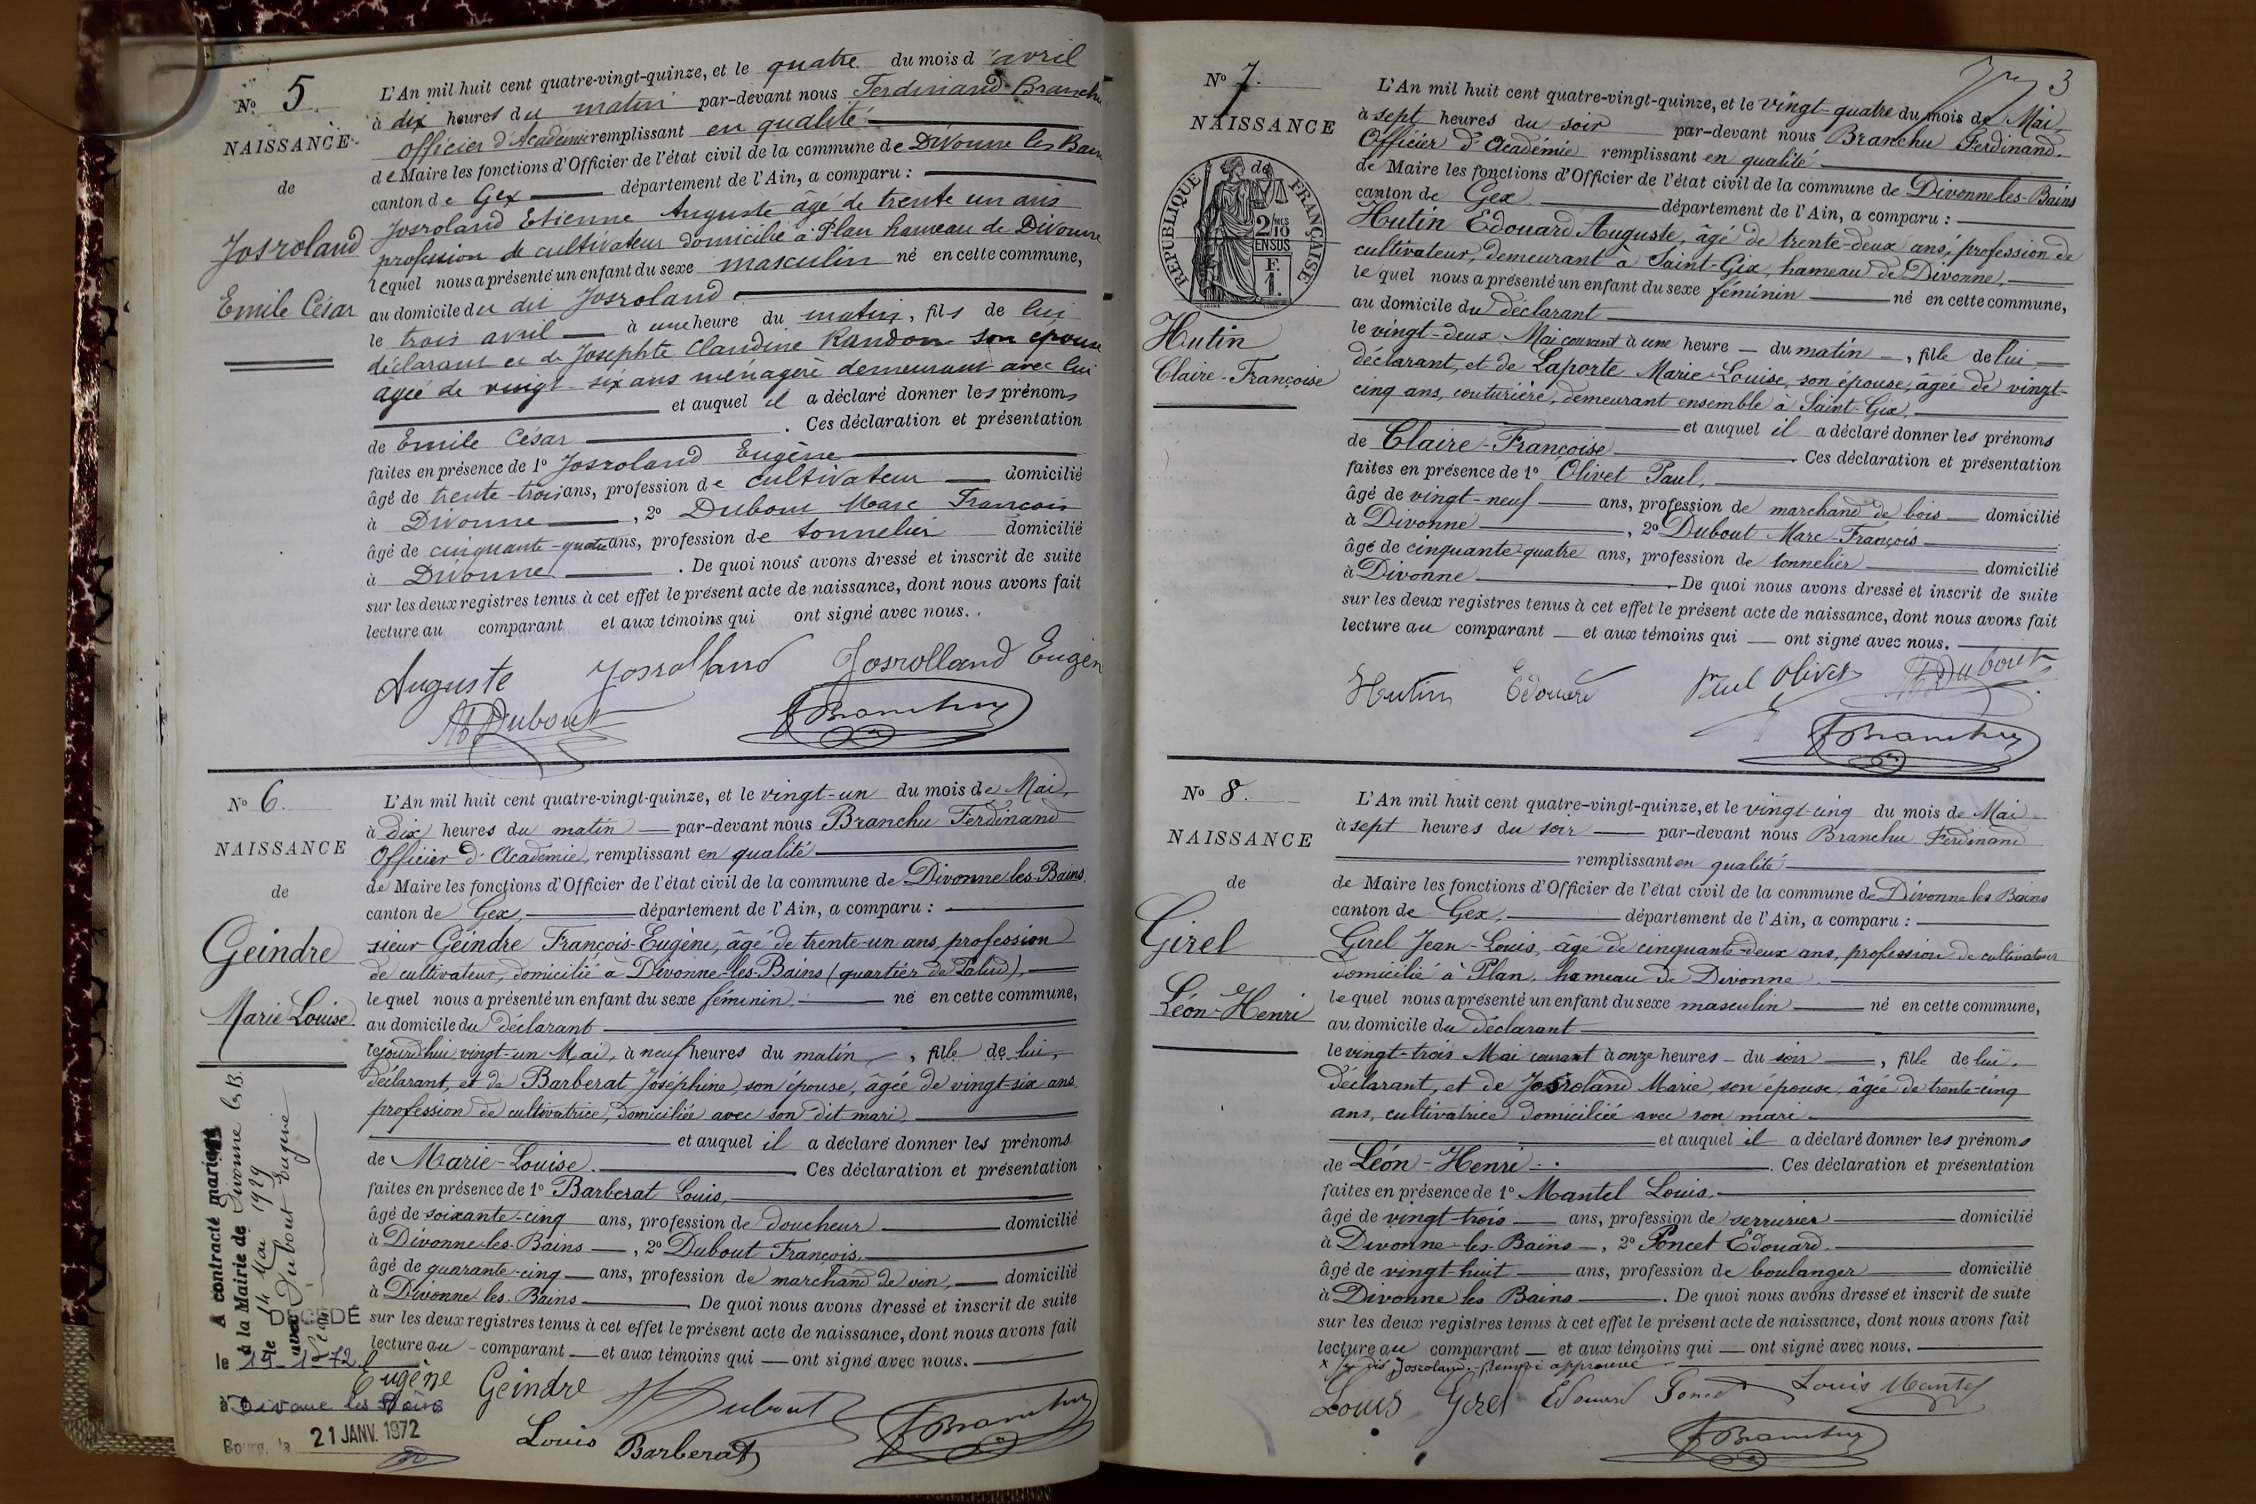 No 5
NAISSANCE
de
Josroland
Emile César
L'An mil huit cent quatre-vingt-quinze, et le quatre du mois d'avril
à dix heures du matin par-devant nous Ferdinand Branchu
officier d'Académie remplissant en qualité
de Maire les fonctions d'Officier de l'état civil de la commune de Divonne les Bains
canton de Gex département de l'Ain, a comparu :
Josroland Etienne Auguste âgé de trente un ans
profession de cultivateur domicilié à Plan hameau de Divonne
lequel nous a présenté un enfant du sexe masculin né en cette commune,
au domicile du dit Josroland
le trois avril à une heure du matin, fils de lui
déclarant et de Josephte Claudine Randon son épouse
agée de vingt-six ans ménagère demeurant avec lui
et auquel il a déclaré donner les prénoms
de Emile César . Ces déclaration et présentation
faites en présence de 1o Josroland Eugène
âgé de trente-trois ans, profession de cultivateur domicilié
à Divonne , 2o Dubout Marc François
âgé de cinquante-quatre ans, profession de tonnelier domicilié
à Divonne . De quoi nous avons dressé et inscrit de suite
sur les deux registres tenus à cet effet le présent acte de naissance, dont nous avons fait
lecture au comparant et aux témoins qui ont signé avec nous.
Auguste Josrolland Josrolland Eugèn
M Dubout F Branchu
No 6.
NAISSANCE
de
Geindre
Marie Louise
L'An mil huit cent quatre-vingt-quinze, et le vingt-un du mois de Mai,
à dix heures du matin par-devant nous Branchu Ferdinand
Officier d'Académie, remplissant en qualité
de Maire les fonctions d'Officier de l'état civil de la commune de Divonne-les-Bains
canton de Gex, département de l'Ain, a comparu :
sieur Geindre François-Eugène, âgé de trente-un ans, profession
de cultivateur, domicilié à Divonne-les-Bains (quartier de Palud),
lequel nous a présenté un enfant du sexe féminin, né en cette commune,
au domicile du déclarant
lejourd'hui vingt-un Mai, à neuf heures du matin, fille de lui,
déclarant, et de Barberat Joséphine, son épouse, âgée de vingt-six ans
profession de cultivatrice, domiciliée avec son dit mari,
et auquel il a déclaré donner les prénoms
de Marie-Louise. Ces déclaration et présentation
faites en présence de 1o Barberat Louis,
âgé de soixante-cinq ans, profession de doucheur domicilié
à Divonne-les-Bains , 2o Dubout François,
âgé de quarante-cinq ans, profession de marchand de vin, domicilié
à Divonne-les-Bains . De quoi nous avons dressé et inscrit de suite
sur les deux registres tenus à cet effet le présent acte de naissance, dont nous avons fait
lecture au comparant et aux témoins qui ont signé avec nous.
Eugène Geindre Dubout
Louis Barberat F Branchu
A contracté mariage
à la Mairie de Divonne les B.
le 14 Mai 1929
avec Dubout Eugène
DÉCÉDÉ
le 19-1-72
à Divonne les Bains
Bourg, le 21 JANV. 1972
3
No 7.
NAISSANCE
RÉPUBLIQUE FRANÇAISE
2/10 MES
EN SUS
F.
1.
de
Hutin
Claire-Françoise
L'An mil huit cent quatre-vingt-quinze, et le vingt-quatre du mois de Mai,
à sept heures du soir par-devant nous Branchu Ferdinand.
Officier d'Académie remplissant en qualité
de Maire les fonctions d'Officier de l'état civil de la commune de Divonne-les-Bains
canton de Gex département de l'Ain, a comparu :
Hutin Edouard Auguste, âgé de trente-deux ans, profession de
cultivateur, demeurant à Saint-Gix, hameau de Divonne,
lequel nous a présenté un enfant du sexe féminin né en cette commune,
au domicile du déclarant
le vingt-deux Mai courant à une heure du matin, fille de lui
déclarant, et de Laporte Marie-Louise, son épouse, âgée de vingt-
cinq ans, couturière, demeurant ensemble à Saint-Gix,
et auquel il a déclaré donner les prénoms
de Claire-Françoise . Ces déclaration et présentation
faites en présence de 1o Olivet Paul,
âgé de vingt-neuf ans, profession de marchand de bois domicilié
à Divonne , 2o Dubout Marc-François
âgé de cinquante-quatre ans, profession de tonnelier domicilié
à Divonne . De quoi nous avons dressé et inscrit de suite
sur les deux registres tenus à cet effet le présent acte de naissance, dont nous avons fait
lecture au comparant et aux témoins qui ont signé avec nous.
Hutin Edouard Paul Olivet M Dubout
F Branchu
No 8.
NAISSANCE
de
Girel
Léon-Henri
L'An mil huit cent quatre-vingt-quinze, et le vingt-cinq du mois de Mai
à sept heures du soir par-devant nous Branchu Ferdinand
remplissant en qualité
de Maire les fonctions d'Officier de l'état civil de la commune de Divonne les Bains
canton de Gex, département de l'Ain, a comparu :
Girel Jean-Louis, âgé de cinquante-deux ans, profession de cultivateur
domicilié à Plan, hameau de Divonne
lequel nous a présenté un enfant du sexe masculin né en cette commune,
au domicile du déclarant
le vingt-trois Mai courant à onze heures du soir, fils de lui,
déclarant, et de Josroland Marie, son épouse, âgée de trente-cinq
ans, cultivatrice domiciliée avec son mari
et auquel il a déclaré donner les prénoms
de Léon-Henri . Ces déclaration et présentation
faites en présence de 1o Mantel Louis,
âgé de vingt-trois ans, profession de serrurier domicilié
à Divonne-les-Bains , 2o Poncet Edouard,
âgé de vingt-huit ans, profession de boulanger domicilié
à Divonne les Bains . De quoi nous avons dressé et inscrit de suite
sur les deux registres tenus à cet effet le présent acte de naissance, dont nous avons fait
lecture au comparant et aux témoins qui ont signé avec nous.
Josroland approuvé
Louis Girel Edouard Poncet Louis Mantel
F Branchu